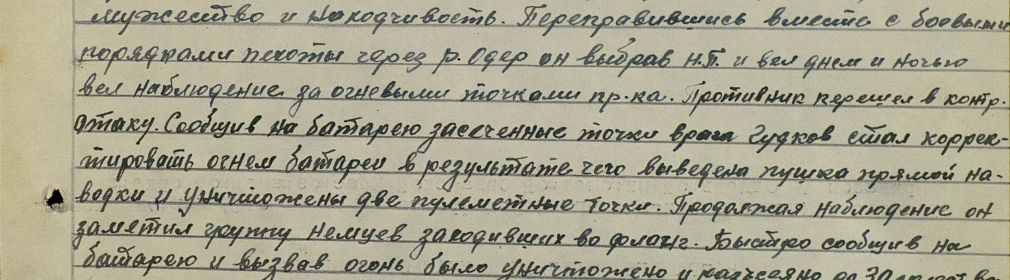 мужество и находчивость. Переправившись вместе с боевыми
порядками пехоты через р. Одер он выбрав Н.П. и вел днем и ночью
вел наблюдение за огневыми точками пр-ка. Противник перешел в контр.
атаку. Сообщив на батарею засеченные точки врага Гудков стал коррек-
тировать огнем батареи в результате чего выведена пушка прямой на-
водки и уничтожены две пулеметные точки. Продолжая наблюдение он
заметил группу немцев заходивших во фланг. Быстро сообщив на
батарею и вызвав огонь было уничтожено и рассеяно до 30